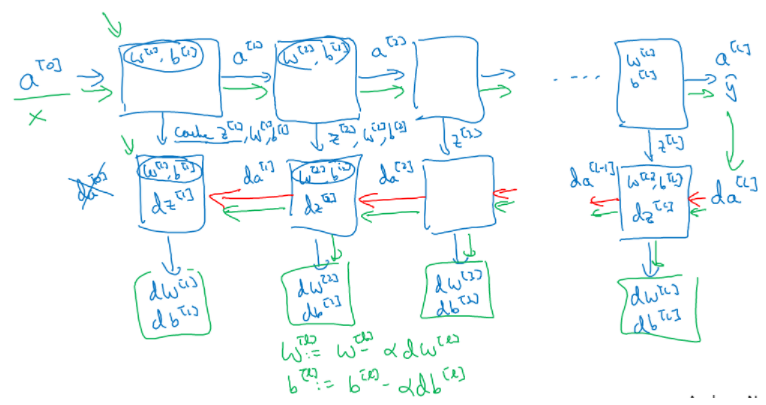 a^[0] w^[1], b^[1] a^[1] w^[2], b^[2] a^[2] w^[L] b^[L] a^[L]
x .... ŷ
cache z^[1], w^[1], b^[1] z^[2], w^[2], b^[2] z^[3] z^[L]
da^[0] w^[1], b^[1] dz^[1] da^[1] w^[2], b^[2] dz^[2] da^[2] da^[L-1] w^[L], b^[L] dz^[L] da^[L]
dw^[1] dw^[2] dw^[3] dw^[L]
db^[1] db^[2] db^[3] db^[L]
w^[l] := w^[l] - α dw^[l]
b^[l] := b^[l] - α db^[l]